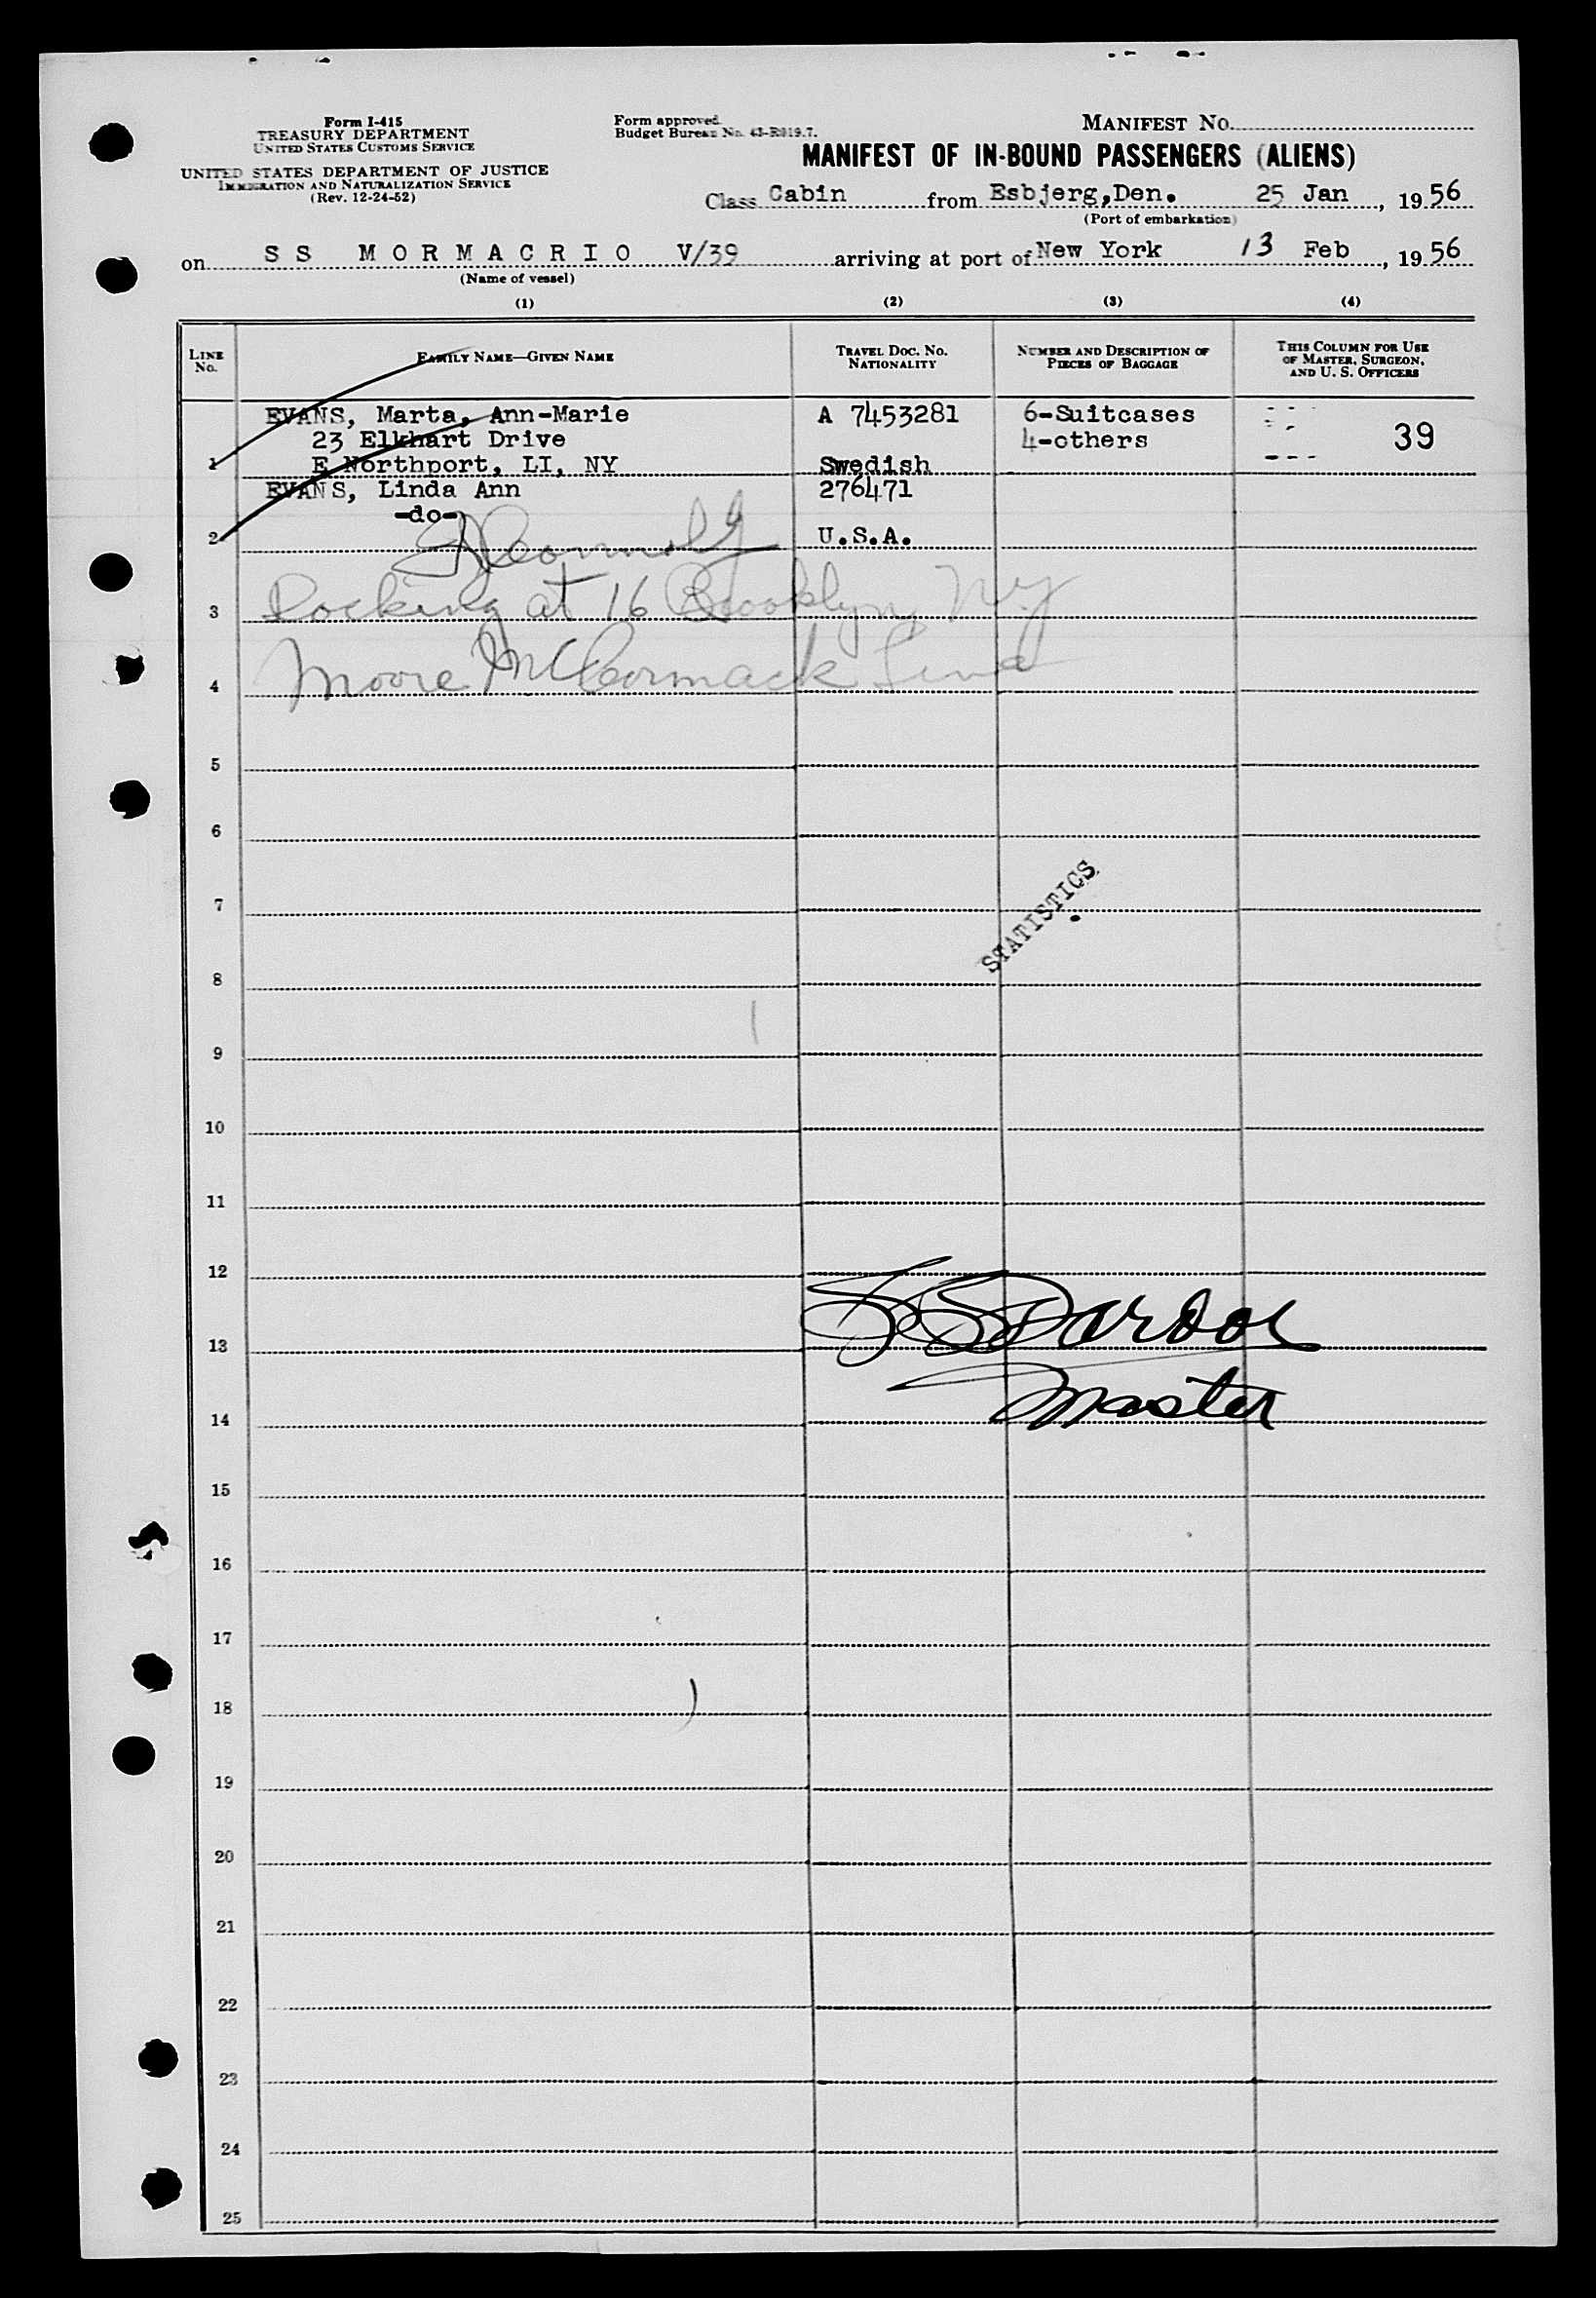 Form I-415
TREASURY DEPARTMENT
UNITED STATES CUSTOMS SERVICE
UNITED STATES DEPARTMENT OF JUSTICE
IMMIGRATION AND NATURALIZATION SERVICE
(Rev. 12-24-52)
Form approved.
Budget Bureau No. 43-R019.7.
MANIFEST NO.
MANIFEST OF IN-BOUND PASSENGERS (ALIENS)
Class Cabin from Esbjerg,Den. 25 Jan , 19 56
(Port of embarkation)
on SS MORMACRIO V/39 arriving at port of New York 13 Feb , 19 56
(Name of vessel)
(1) (2) (3) (4)
LINE NO. FAMILY NAME—GIVEN NAME TRAVEL DOC. NO. NATIONALITY NUMBER AND DESCRIPTION OF PIECES OF BAGGAGE THIS COLUMN FOR USE OF MASTER, SURGEON, AND U. S. OFFICERS
EVANS, Marta, Ann-Marie A 7453281 6-Suitcases
23 Elkhart Drive 4-others 39
1 E Northport, LI, NY Swedish
EVANS, Linda Ann 276471
-do-
2 U.S.A.
3 Docking at 16 Brooklyn, NY
4 Moore McCormack Line
5
6
7
STATISTICS
8
9
10
11
12
13
14 Master
15
16
17
18
19
20
21
22
23
24
25